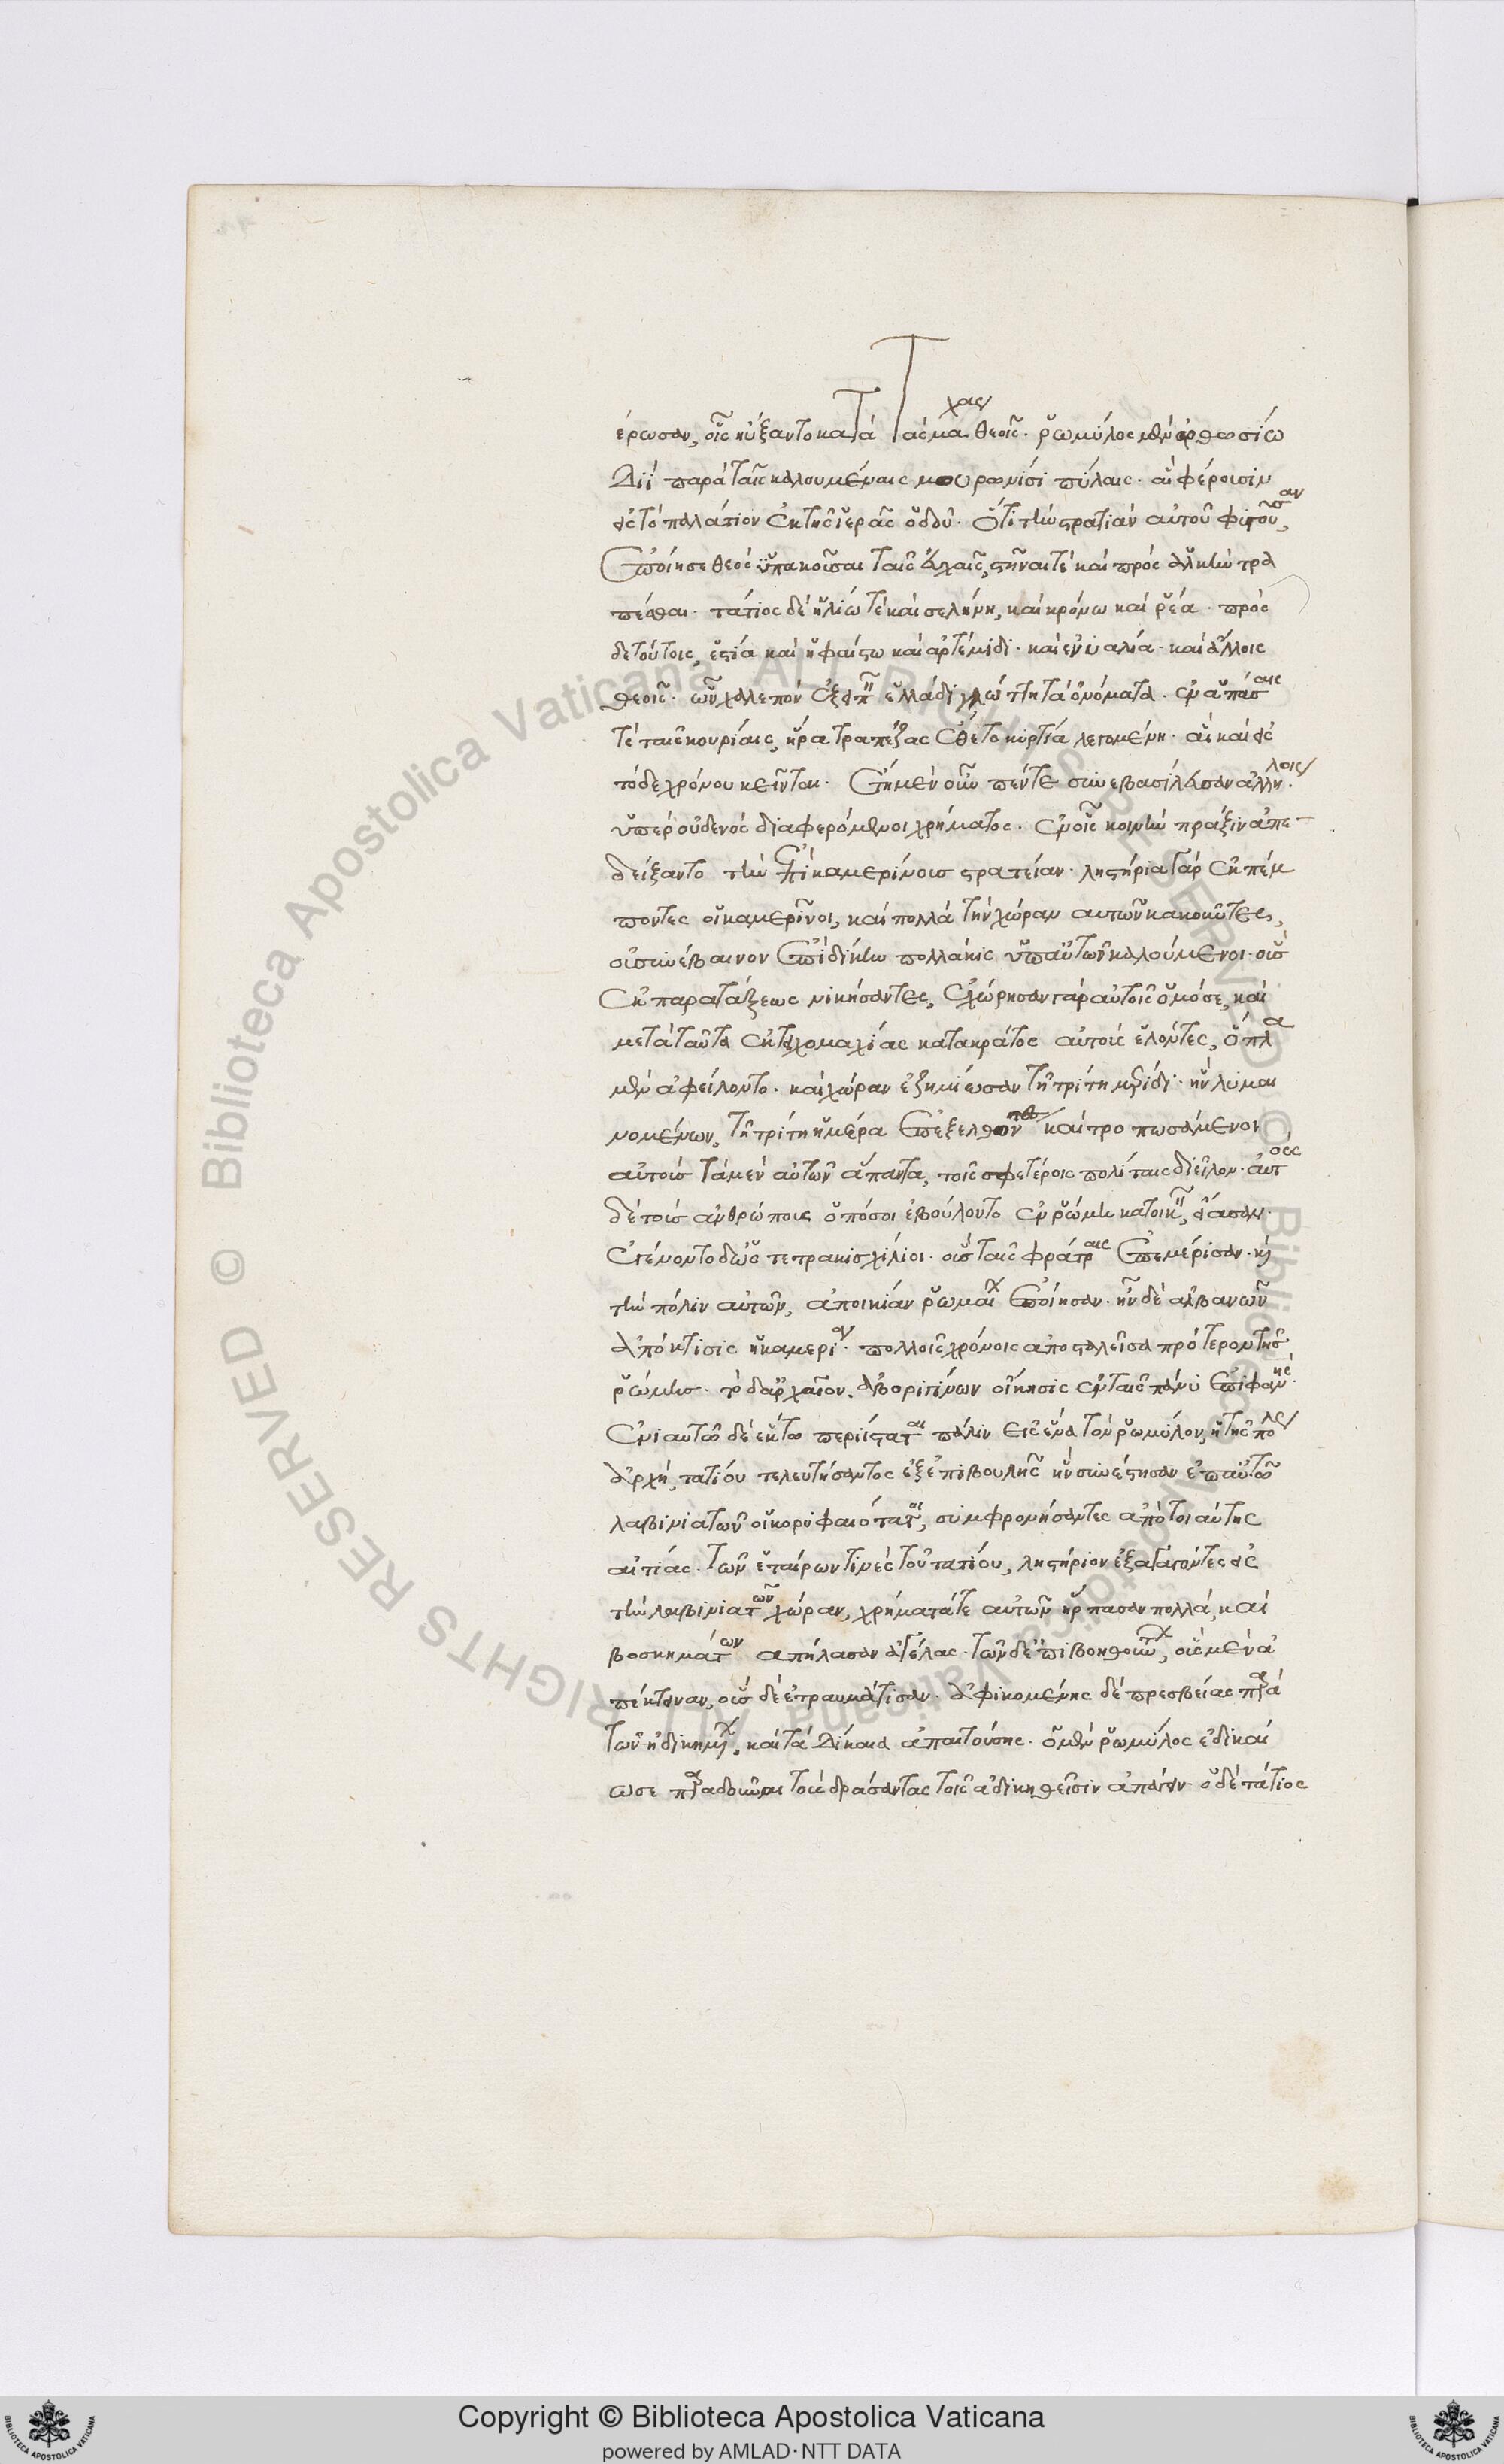 έρωσαν, οἷς ηὔξαντο κατὰ τὰς μάχας θεοῖς. ῥωμύλος μὲν ὀρθωσίω
Διὶ παρὰ ταῖς καλουμέναις μουρωνίσι πύλαις. αἳ φέροισιν
εἰς τὸ παλάτιον ἐκ τῆς ἱερᾶς ὁδοῦ. ὅτι τὴν στρατιὰν αὐτοῦ φυγοῦσαν,
ἐποίησε θεὸς ὑπακοῦσαι ταῖς εὐχαῖς, στῆναι τὲ καὶ πρὸς ἀλκὴν τρα
πέσθαι. τάτιος δὲ ἡλίω τὲ καὶ σελήνη, καὶ κρόνω καὶ ῥέα. πρὸς
δὲ τούτοις, ἑστία καὶ ἡφαίστω καὶ ἀρτέμιδι. καὶ ἐνυαλία. καὶ ἄλλοις
θεοῖς. ὧν χαλεπὸν ἐξειπεῖν ἑλλάδι γλώττη τὰ ὀνόματα. ἐν ἁπάσαις
τὲ ταῖς κουρίαις, ἥρα τραπέζας ἔθετο κυρτία λεγομένη. αἳ καὶ εἰς
τόδε χρόνου κεῖνται. ἔτη μὲν οὖν πέντε συνεβασίλευσαν ἀλλήλοις.
ὑπὲρ οὐδενὸς διαφερόμενοι χρήματος. ἐν οἷς κοινὴν πράξιν ἀπε
δείξαντο τὴν ἐπὶ καμερίνοις στρατείαν. ληστήρια γὰρ ἐκπέμ
ποντες οἱ καμερῖνοι, καὶ πολλὰ τὴν χώραν αὐτῶν κακοῦντες,
οὐ συνέβαινον ἐπὶ δίκην πολλάκις ὑπ' αὐτῶν καλούμενοι. οὓς
ἐκ παρατάξεως νικήσαντες, ἐχώρησαν γὰρ αὐτοῖς ὁμόσε, καὶ
μετὰ ταῦτα ἐκ τειχομαχίας κατακράτος αὐτοὺς ἑλόντες, ὅπλα
μὲν ἀφείλοντο. καὶ χώραν ἐζημίωσαν τῆ τρίτη μερίδι. ἣν λυμαι
νομένων, τῆ τρίτη ἡμέρα ἐπεξελθόντες καὶ τροπωσάμενοι
αὐτοὺς τὰ μὲν αὐτῶν ἅπαντα, τοῖς σφετέροις πολίταις διεῖλον. αὐτοὺς
δὲ τοὺς ἀνθρώπους ὁπόσοι ἐβούλοντο ἐν ῥώμη κατοικεῖν, εἴασαν.
ἐγένοντο δ' ὡς τετρακισχίλιοι. οὓς ταῖς φράτραις ἐπεμέρισαν. καὶ
τὴν πόλιν αὐτῶν, ἀποικίαν ῥωμαίων ἐποίησαν. ἦν δὲ ἀλβανῶν
ἀπόκτισις ἡ καμερία. πολλοῖς χρόνοις ἀποσταλεῖσα πρότερον τῆς
ῥώμης. τὸ δ' ἀρχαῖον. ἀβοριγίνων οἴκησις ἐν ταῖς πάνυ ἐπιφανής.
ἐνιαυτῶ δὲ ἕκτω περιίσταται πάλιν εἰς ἕνα τὸν ῥωμύλον, ἡ τῆς πόλεως
ἀρχὴ, τατίου τελευτήσαντος ἐξ ἐπιβουλῆς ἣν συνέστησαν ἐπ' αὐτῶ
λαβινιατῶν οἱ κορυφαιότατοι, συμφρονήσαντες ἀπὸ τοιαύτης
αἰτίας. τῶν ἑταίρων τινὲς τοῦ τατίου, ληστήριον ἐξαγαγόντες εἰς
τὴν λαβινιατῶν χώραν, χρήματά τε αὐτῶν ἥρπασαν πολλὰ, καὶ
βοσκημάτων ἀπήλασαν ἀγέλας. τῶν δὲ ἐπιβοηθούντων, οὓς μὲν ἀ
πέκτειναν, οὓς δὲ ἐτραυμάτισαν. ἀφικομένης δὲ πρεσβείας παρὰ
τῶν ἠδικημένων, καὶ τὰ δίκαια ἀπαιτούσης. ὁ μὲν ῥωμύλος ἐδικαί
ωσε παραδοῦναι τοὺς δράσαντας τοῖς ἀδικηθεῖσιν ἀπάγειν. ὁ δὲ τάτιος
Copyright © Biblioteca Apostolica Vaticana
powered by AMLAD·NTT DATA